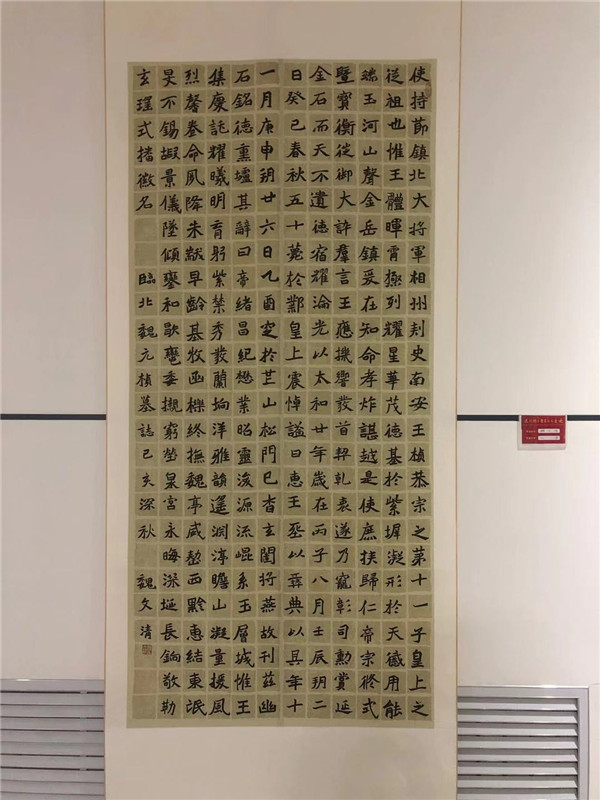 使持節鎮北大將軍相州刾史南安王楨恭宗之第十一子皇上之
從祖也惟王體暉霄極列耀星華茂德基於紫墀凝形於天儀用能
端玉河山聲金岳鎮爰在知命孝性諶越是使庶族歸仁帝宗攸式
暨寶衡從御大訊羣言王應機響發首契乾衷遂乃寵彰司勳賞延
金石而天不遺德宿耀淪光以太和廿年歲在丙子八月壬辰朔二
日癸巳春秋五十薨於鄴皇上震悼謚曰惠王葬以彝典以其年十
一月庚申朔廿六日乙酉窆於芒山松門已杳玄闥將蕪故刊茲幽
石銘德熏壚其辭曰帝緒昌紀懋業昭靈浚源流崐系玉層城惟王
集慶託耀曦明育躬紫禁秀發蘭坰洋雅韻遙淵渟瞻山凝量援風
烈馨眷命夙降朱黻早齡基牧幽櫟終撫魏亭威整西黔惠結東氓
旻不錫嘏景儀墜傾鑾和歇轡委櫬窮塋泉宮永晦深埏長鐍敬勒
玄瑤式播徽名 臨北魏元楨墓誌己亥深秋 魏文清